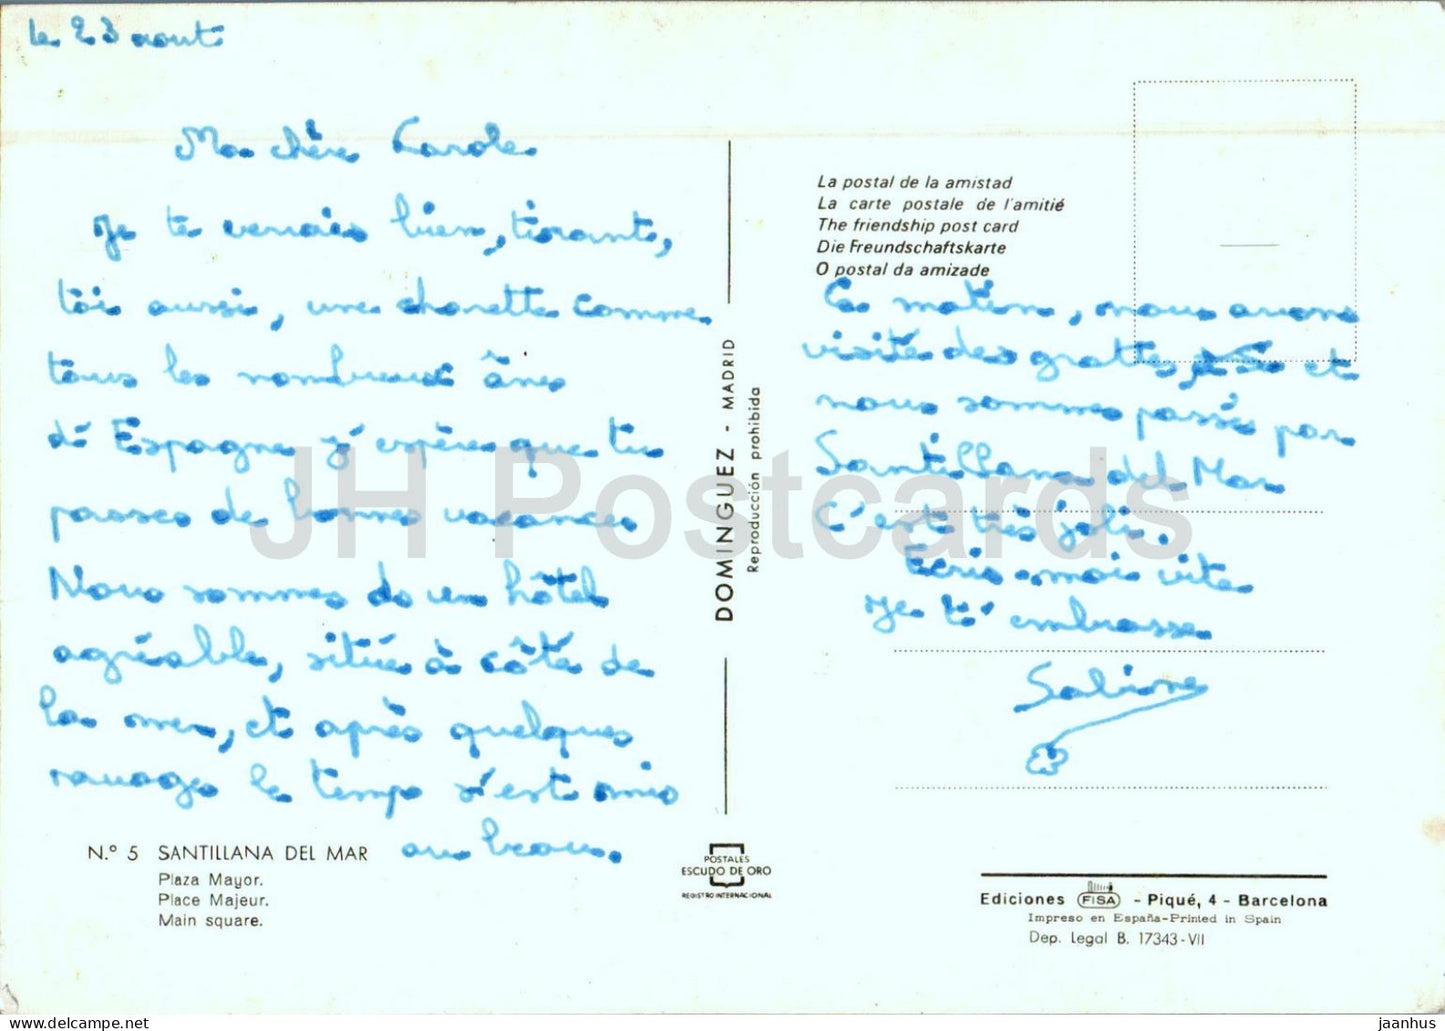 le 23 aout
Ma chère Carole
Je te verrais bien, tirant,
toi aussi, une charette comme
tous les nombreux ânes
d'Espagne j'espère que tu
passes de bonnes vacances
Nous sommes ds un hôtel
agréable, située à côté de
la mer, et après quelques
nuages le temps s'est mis
au beau.
N.º 5 SANTILLANA DEL MAR
Plaza Mayor.
Place Majeur.
Main square.
DOMINGUEZ - MADRID
Reproducción prohibida
POSTALES
ESCUDO DE ORO
REGISTRO INTERNACIONAL
La postal de la amistad
La carte postale de l'amitié
The friendship post card
Die Freundschaftskarte
O postal da amizade
Ce matin, nous avons
visité des grottes, et
nous sommes passés par
Santillana del Mar
C'est très joli.
Ecris-moi vite
Je t'embrasse
Sabine
Ediciones FISA - Piqué, 4 - Barcelona
Impreso en España-Printed in Spain
Dep. Legal B. 17343-VII
JH Postcards
jaanhus